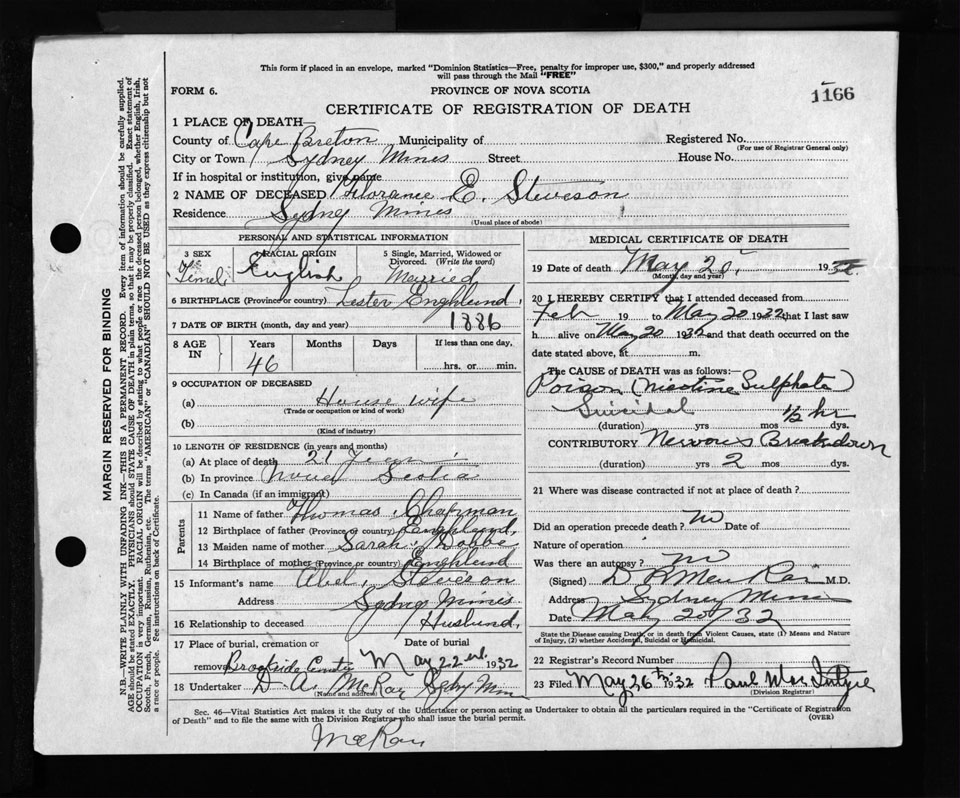 This form if placed in an envelope, marked "Dominion Statistics—Free, penalty for improper use, $300," and properly addressed
will pass through the Mail "FREE"
FORM 6.
PROVINCE OF NOVA SCOTIA
1166
CERTIFICATE OF REGISTRATION OF DEATH
1 PLACE OF DEATH—
County of Cape Breton Municipality of
Registered No.
(For use of Registrar General only)
City or Town Sydney Mines Street House No.
If in hospital or institution, give name
2 NAME OF DECEASED Florance E. Steveson
Residence Sydney Mines
(Usual place of abode)
PERSONAL AND STATISTICAL INFORMATION
3 SEX
Fimel
4 RACIAL ORIGIN
English
5 Single, Married, Widowed or
Divorced. (Write the word)
Married
6 BIRTHPLACE (Province or country) Lester Enghlund
7 DATE OF BIRTH (month, day and year) 1886
8 AGE
IN
Years
46
Months
Days
If less than one day,
hrs. or min.
9 OCCUPATION OF DECEASED
(a) House wife
(Trade or occupation or kind of work)
(b)
(Kind of industry)
10 LENGTH OF RESIDENCE (in years and months)
(a) At place of death 21 Years
(b) In province Nova Scotia
(c) In Canada (if an immigrant)
Parents
11 Name of father Thomas Chapman
12 Birthplace of father (Province or country) Enghlund
13 Maiden name of mother Sarah
14 Birthplace of mother (Province or country) Enghlund
15 Informant's name Abel Steveson
Address Sydney Mines
16 Relationship to deceased Husbund
17 Place of burial, cremation or
removal Brookside
Date of burial
May 22nd 1932
18 Undertaker D. A. McRay Sydny Min
(Name and address)
MEDICAL CERTIFICATE OF DEATH
19 Date of death May 20 1932
(Month, day and year)
20 I HEREBY CERTIFY that I attended deceased from
Feb 19 to May 20 1932 that I last saw
h alive on May 20 1932 and that death occurred on the
date stated above, at m.
The CAUSE of DEATH was as follows:—
Poison (Nicotine Sulphate)
Suicidal 1/2 hr
(duration) yrs mos dys.
CONTRIBUTORY Nervous Breakdown
(duration) yrs 2 mos dys.
21 Where was disease contracted if not at place of death?
Did an operation precede death? no Date of
Nature of operation
Was there an autopsy? no
(Signed) M.D.
Address Sydney Mines
Date May 20/32
State the Disease causing Death, or in death from Violent Causes, state (1) Means and Nature
of Injury, (2) whether Accidental, Suicidal or Homicidal.
22 Registrar's Record Number
23 Filed May 26th 1932 Paul MacIntyre
(Division Registrar)
Sec. 46—Vital Statistics Act makes it the duty of the Undertaker or person acting as Undertaker to obtain all the particulars required in the "Certificate of Registration
of Death" and to file the same with the Division Registrar who shall issue the burial permit.
(OVER)
McRay
MARGIN RESERVED FOR BINDING
N.B.—WRITE PLAINLY WITH UNFADING INK—THIS IS A PERMANENT RECORD. Every item of information should be carefully supplied.
AGE should be stated EXACTLY. PHYSICIANS should STATE CAUSE OF DEATH in plain terms, so that it may be properly classified. Exact statement of
OCCUPATION is very important. RACIAL ORIGIN will be described by stating to what people or race the deceased person belonged, whether English, Irish,
Scotch, French, German, Russian, Ruthenian, etc. The terms "AMERICAN" or "CANADIAN" SHOULD NOT BE USED as they express citizenship but not
a race or people. See instructions on back of Certificate.